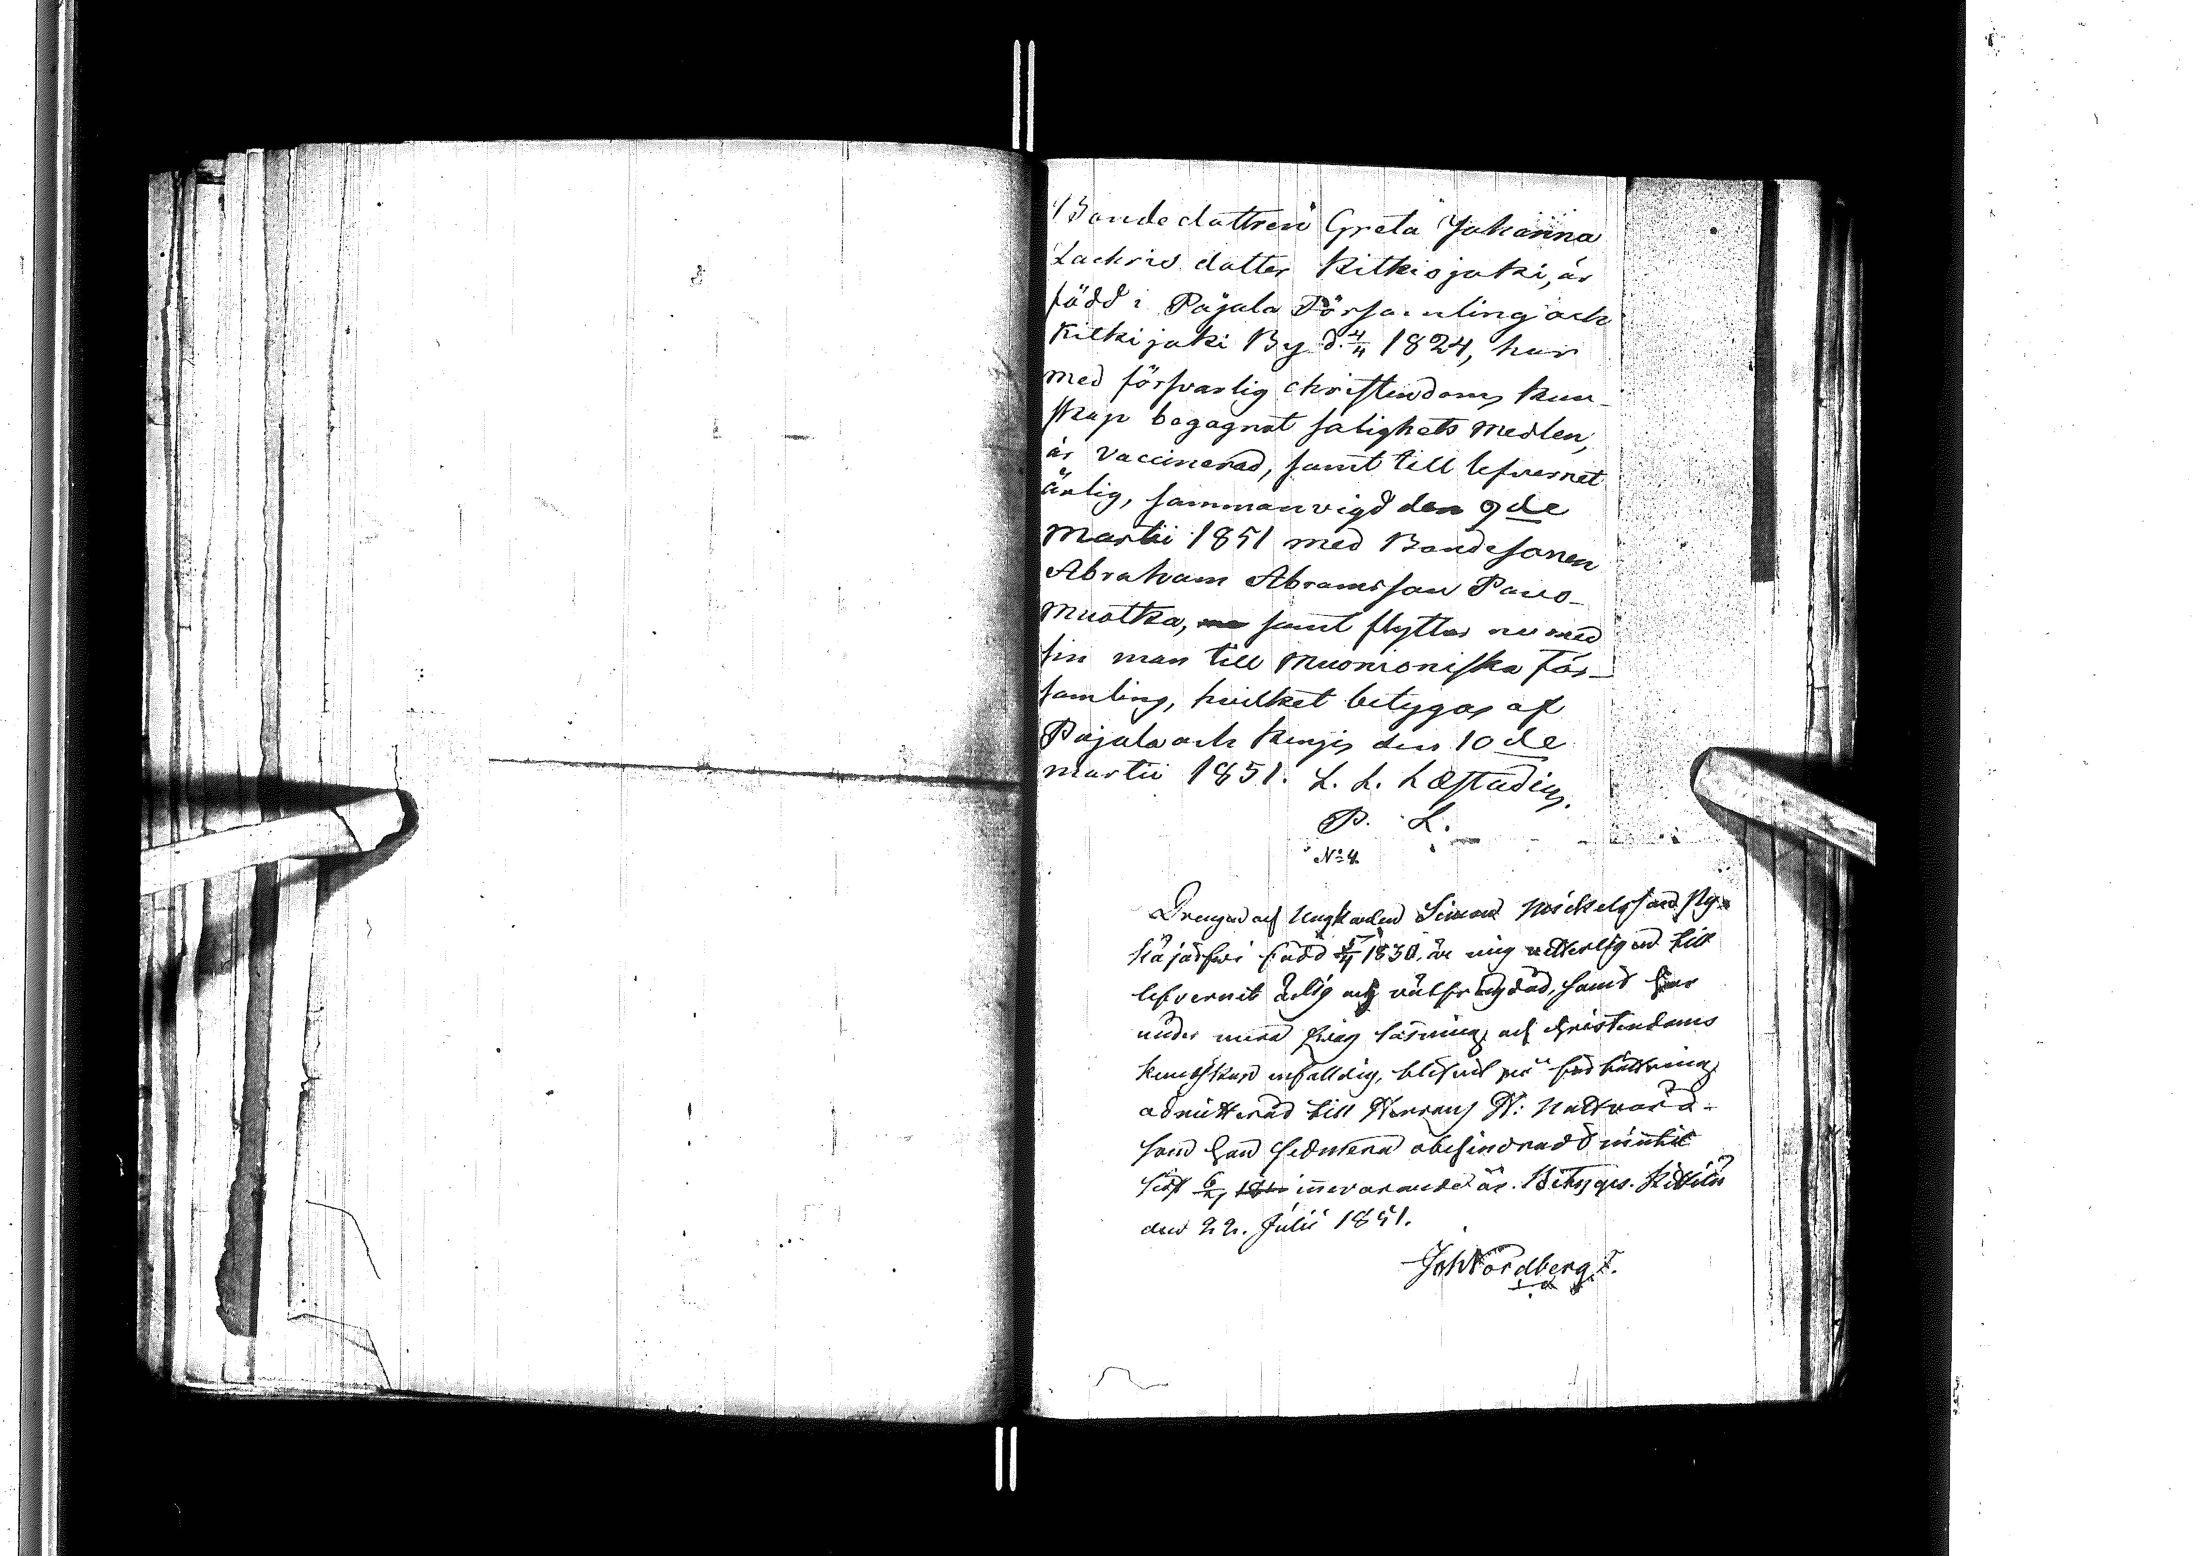 Bondedottren Greta Johanna
Zachris dotter Kitkiojoki, är
född i Pajala Församling och
Kitkijoki By d. 4/4 1824, har
med försvarlig christendoms kun-
skap begagnat salighets medlen,
är vaccinerad, samt till lefvernet
ärlig, sammanvigd den 9de
Martii 1851 med Bondesonen
Abraham Abramsson Pavo-
muotka, samt flyttar nu med
sin man till Muonioniska För-
samling, hvilket betygas af
Pajala och Kengis den 10de
martii 1851. L. L. Læstadius.
P. L.
No 4.
Drengen och Ungkarlen Simon Mickelsson Ny-
född 1830, är mig vetterligen till
lefvernet ärlig och välfrägdad, samt har
under mera svag läsning och christendoms
kunskap enfalldig, blifvit på förbättring
admitterad till Herrans H: Nattvard
som han sedmera obehindradt niutit
sist innevarande år. Betygas. Kittilä
den 22. Julii 1851.
Joh Nordberg